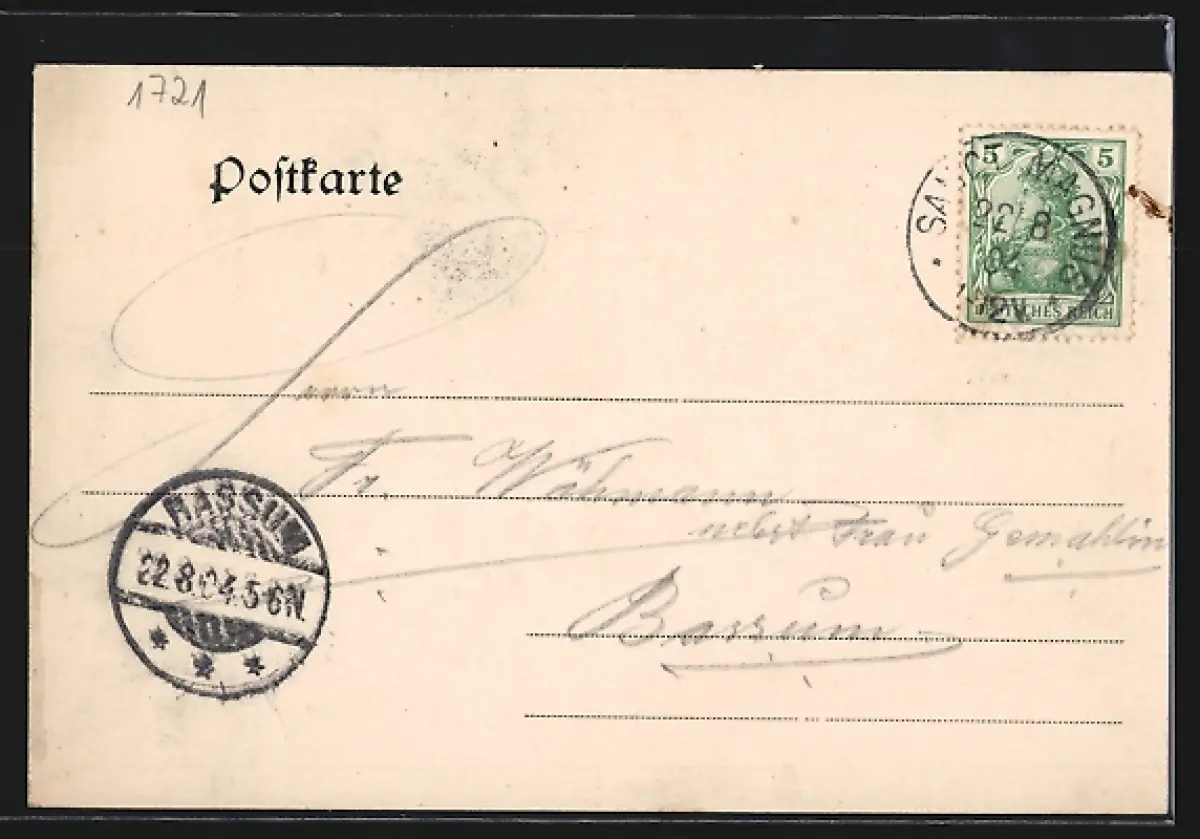 1721
Postkarte
5 5
SANCT MAGNUS
22 8
04
DEUTSCHES REICH
Herrn
Fr. Wöhmann
nebst Frau Gemahlin
Bassum
BASSUM
22.8.04.5-6N.